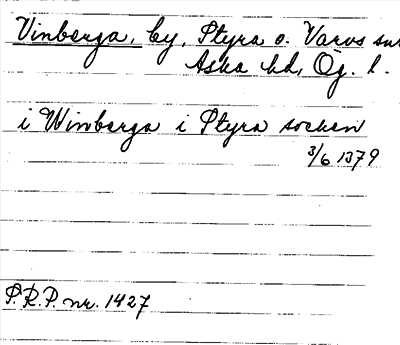 Vinberga, by, Styra o. Varvs sn
Aska hd, Ög. l.
i Winberga i Styra socken
3/6 1379
P.R.P. nr. 1427